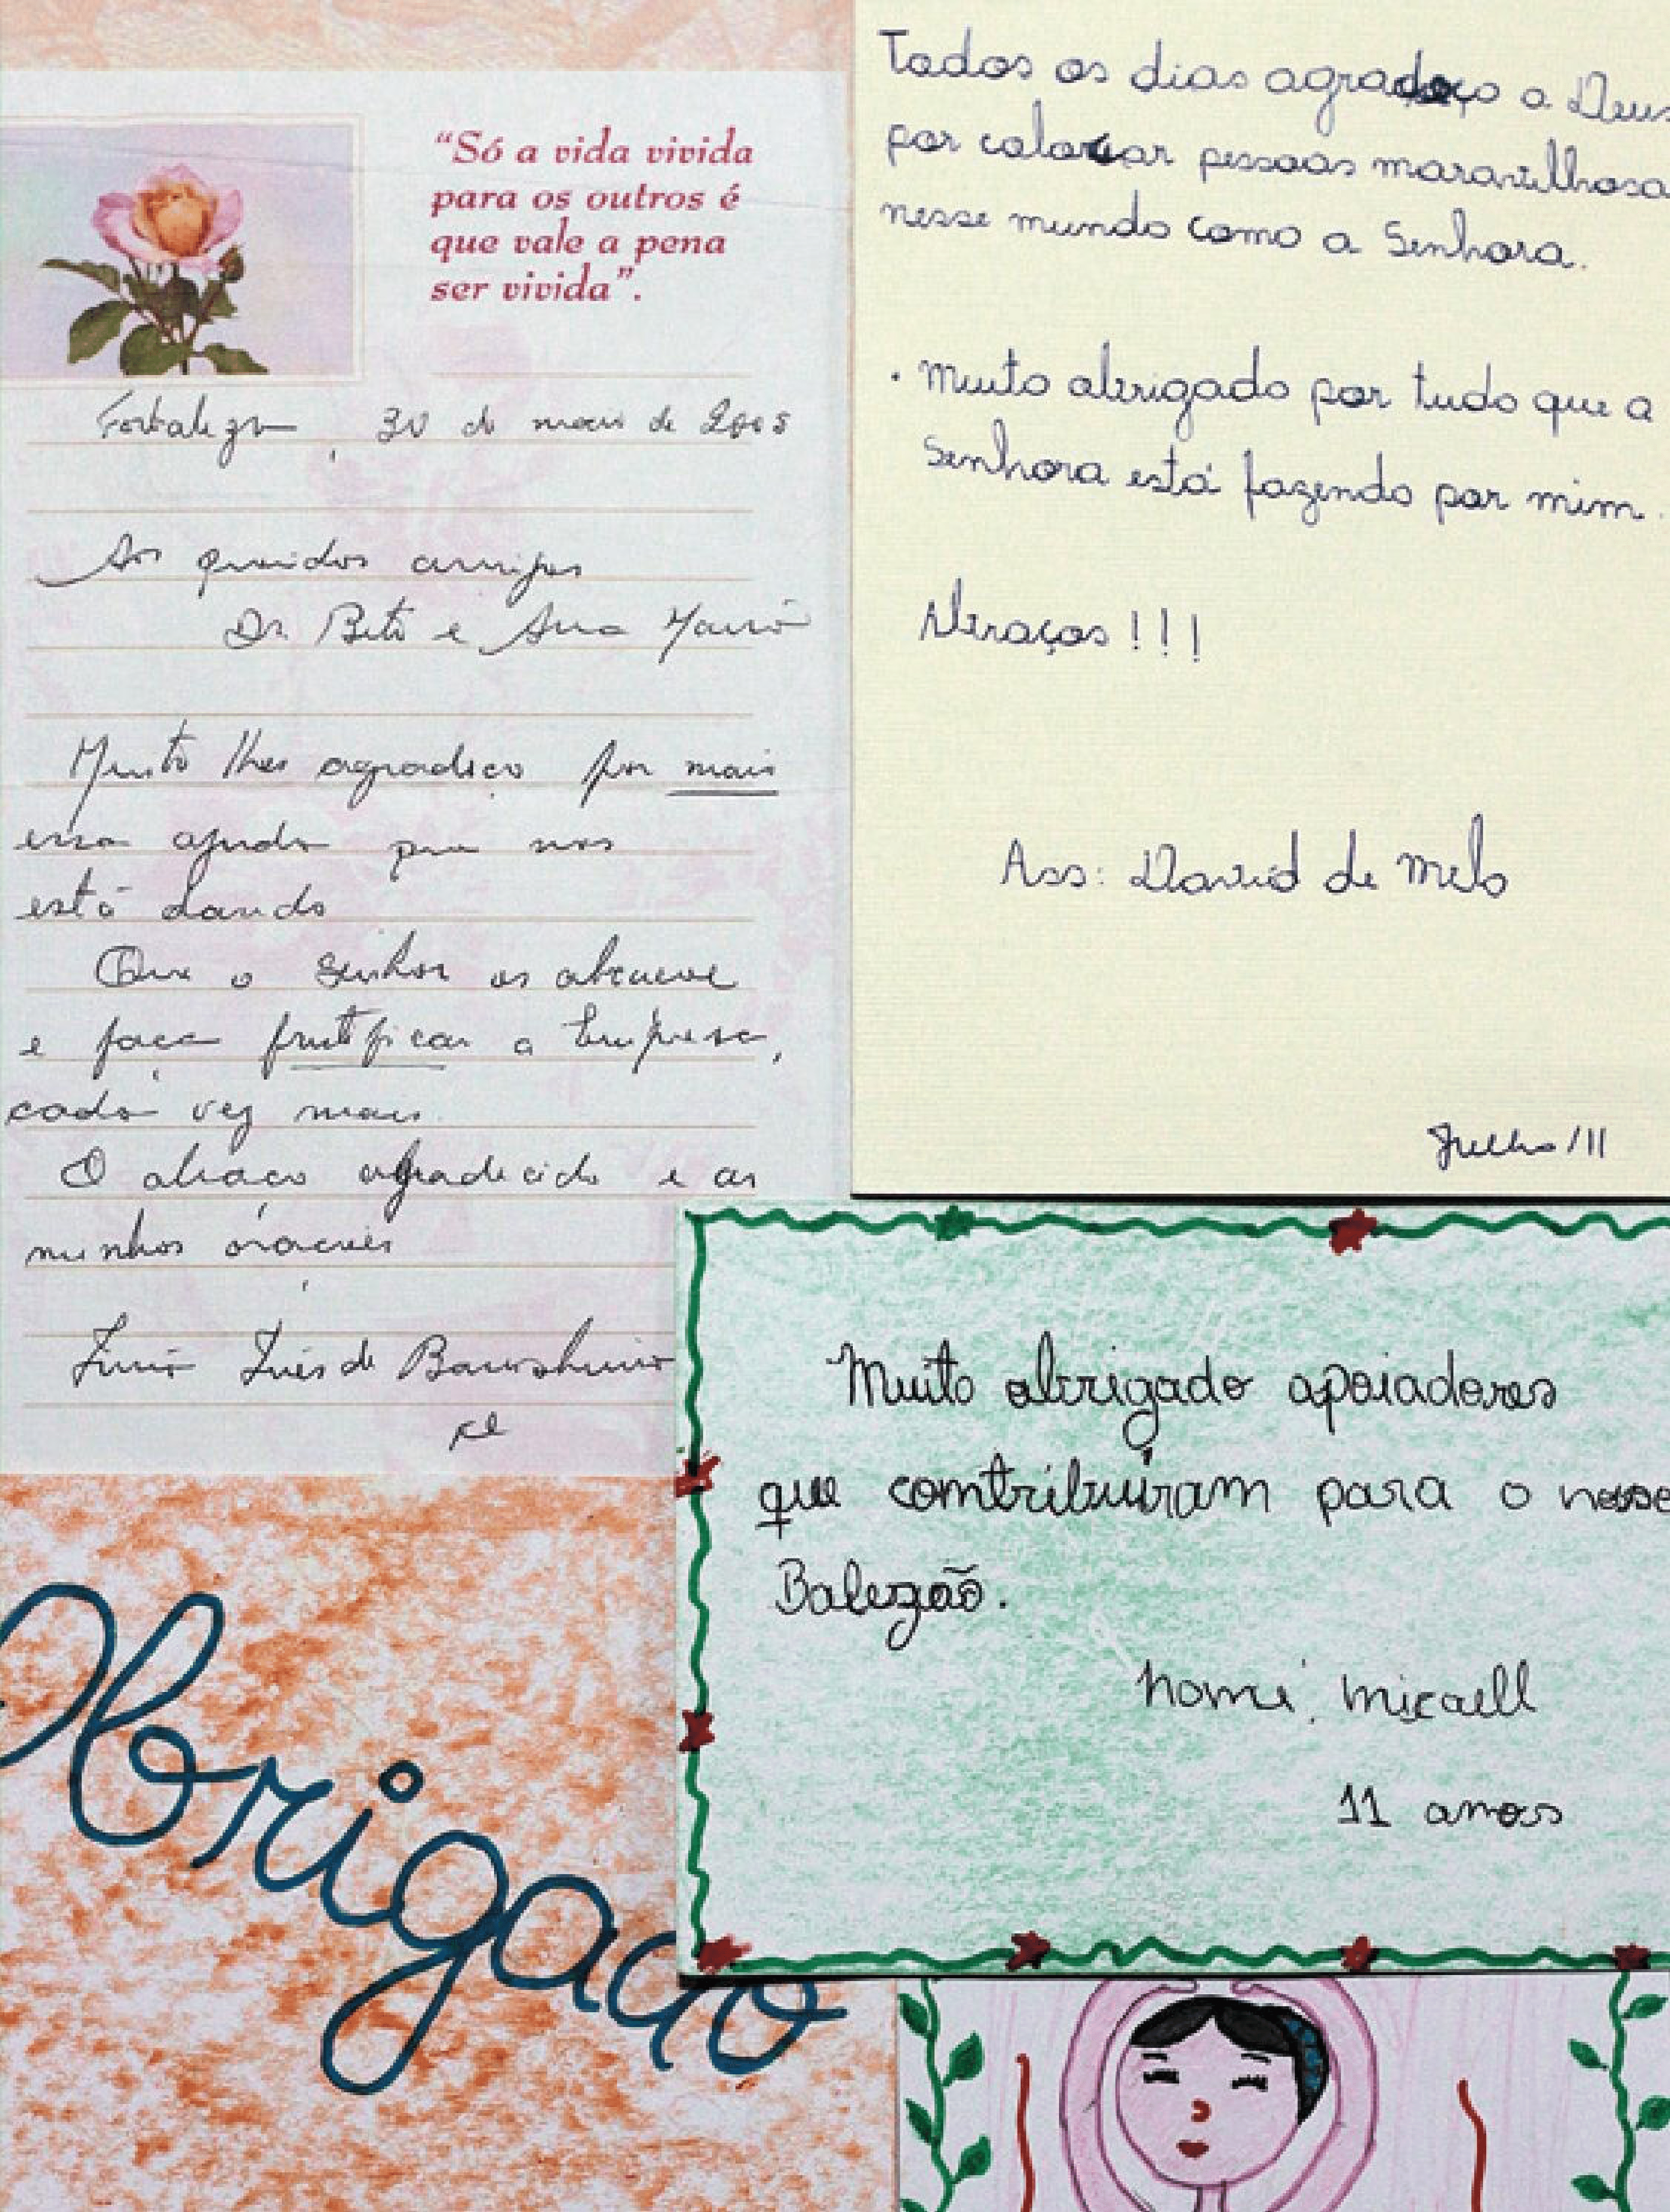 “Só a vida vivida
para os outros é
que vale a pena
ser vivida”.
Fortaleza, 30 de maio de 2005
Aos queridos amigos
Dr. Beto e Ana Maria
Muito lhes agradeço por mais
essa ajuda que nos
está dando
Que o Senhor os abençoe
e faça frutificar a Empresa,
cada vez mais.
O abraço agradecido e as
minhas orações
Irmã Inês de
Todos os dias agradeço a Deus
por colocar pessoas maravilhosa
nesse mundo como a Senhora.
• Muito obrigado por tudo que a
Senhora está fazendo por mim.
Abraços!!!
Ass: David de Melo
Julho/11
Muito obrigado apoiadores
que comtribuíram para o nosso
Balezão.
nome: micaell
11 amos
Obrigado